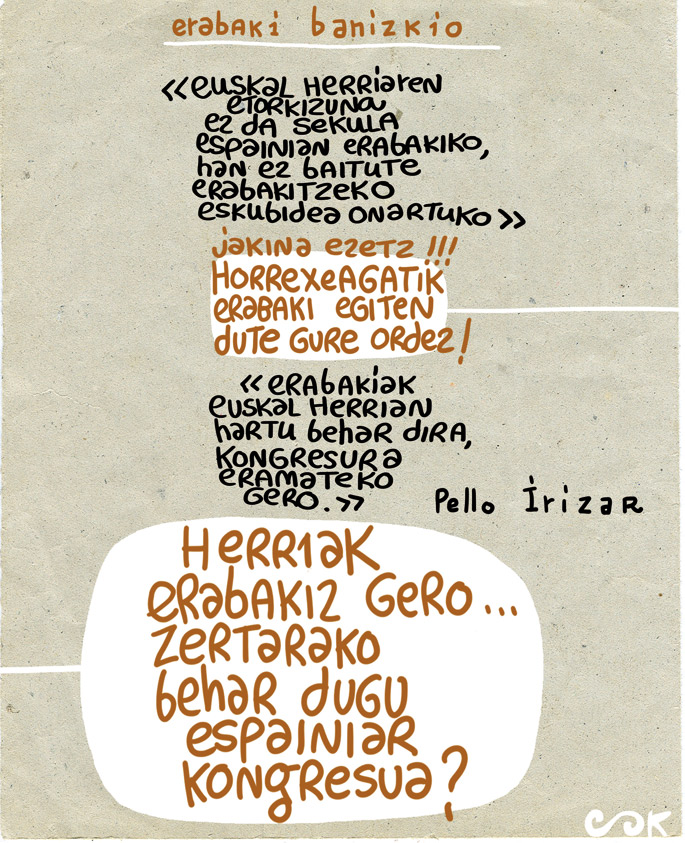 erabaki banizkio
«euskal Herriaren
etorkizuna
ez da sekula
espainian erabakiko,
han ez baitute
erabakitzeko
eskubidea onartuko»
jakina ezetz !!!
Horrexeagatik
erabaki egiten
dute gure ordez!
«erabakiak
euskal Herrian
hartu behar dira,
kongresura
eramateko
gero.»
Pello Irizar
Herriak
erabakiz gero...
zertarako
behar dugu
espainiar
kongresua?